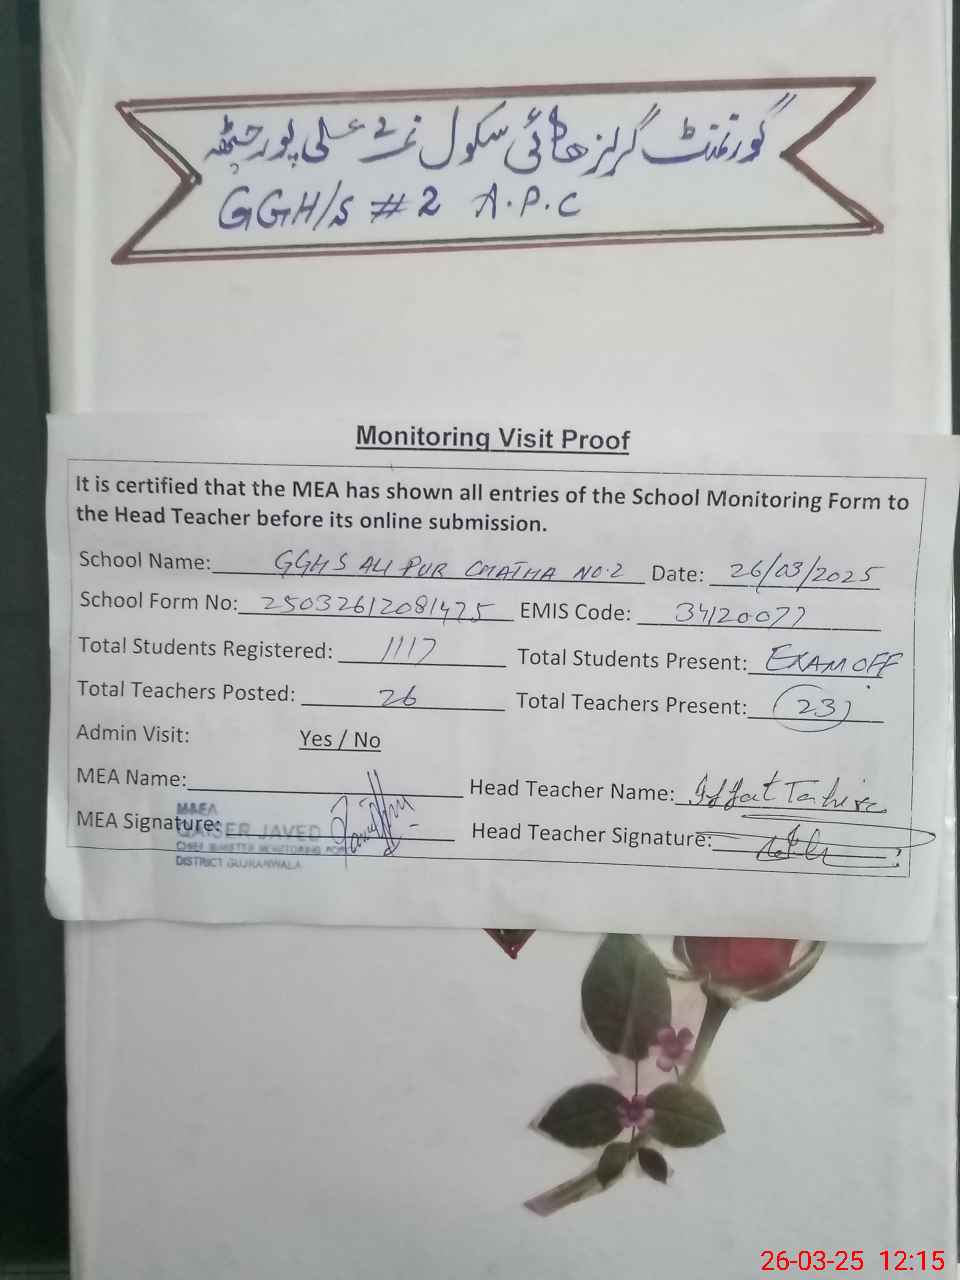 گورنمنٹ گرلز ھائی سکول نمبر 2 علی پور چٹھہ
GGH/S #2 A.P.C
Monitoring Visit Proof
It is certified that the MEA has shown all entries of the School Monitoring Form to
the Head Teacher before its online submission.
School Name: GGHS ALI PUR CHATHA NO.2 Date: 26/03/2025
School Form No: 25032612081475 EMIS Code: 34120077
Total Students Registered: 1117 Total Students Present: EXAM OFF
Total Teachers Posted: 26 Total Teachers Present: 23
Admin Visit: Yes / No
MEA Name: Head Teacher Name: Iffat Tahira
MEA Signature: Head Teacher Signature:
M&EA
QAISER JAVED
CHIEF MINISTER MONITORING FORCE
DISTRICT GUJRANWALA
26-03-25 12:15